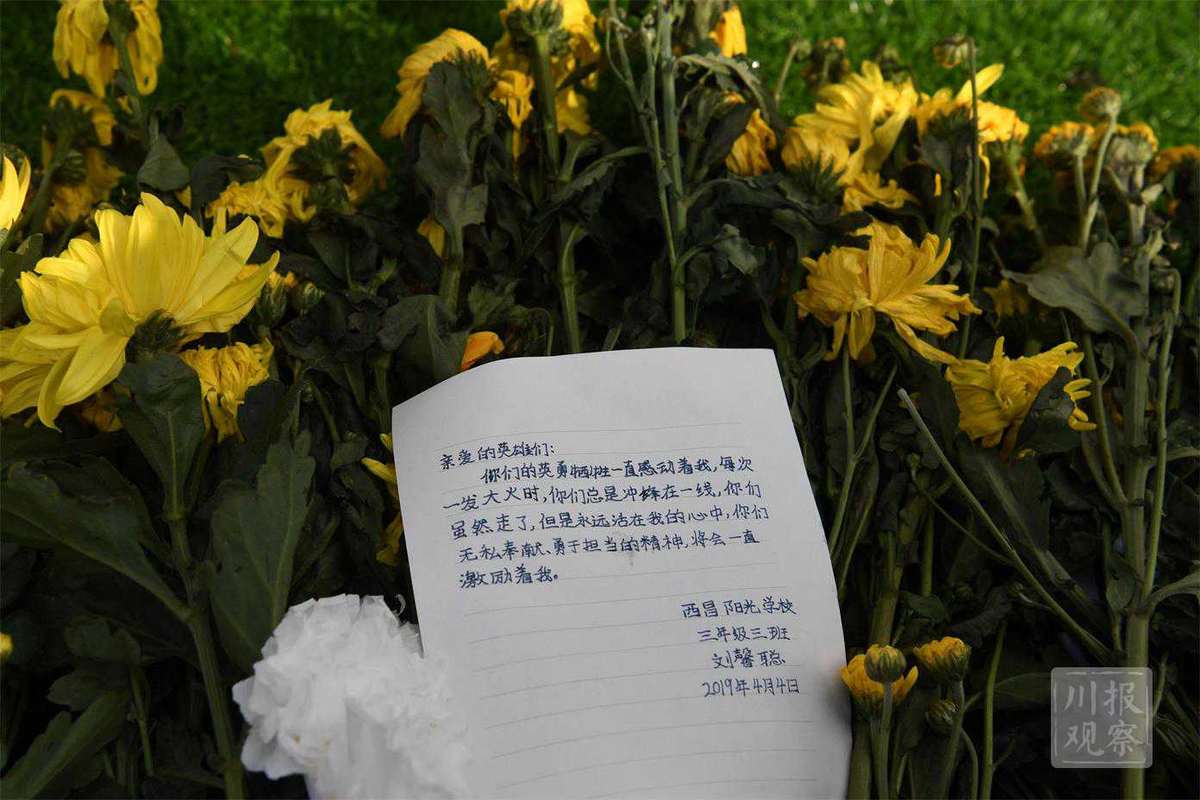 亲爱的英雄们:
你们的英勇牺牲一直感动着我,每次
一发大火时,你们总是冲锋在一线,你们
虽然走了,但是永远活在我的心中,你们
无私奉献、勇于担当的精神,将会一直
激励着我。
西昌阳光学校
三年级三班
刘馨聪
2019年4月4日
川报
观察